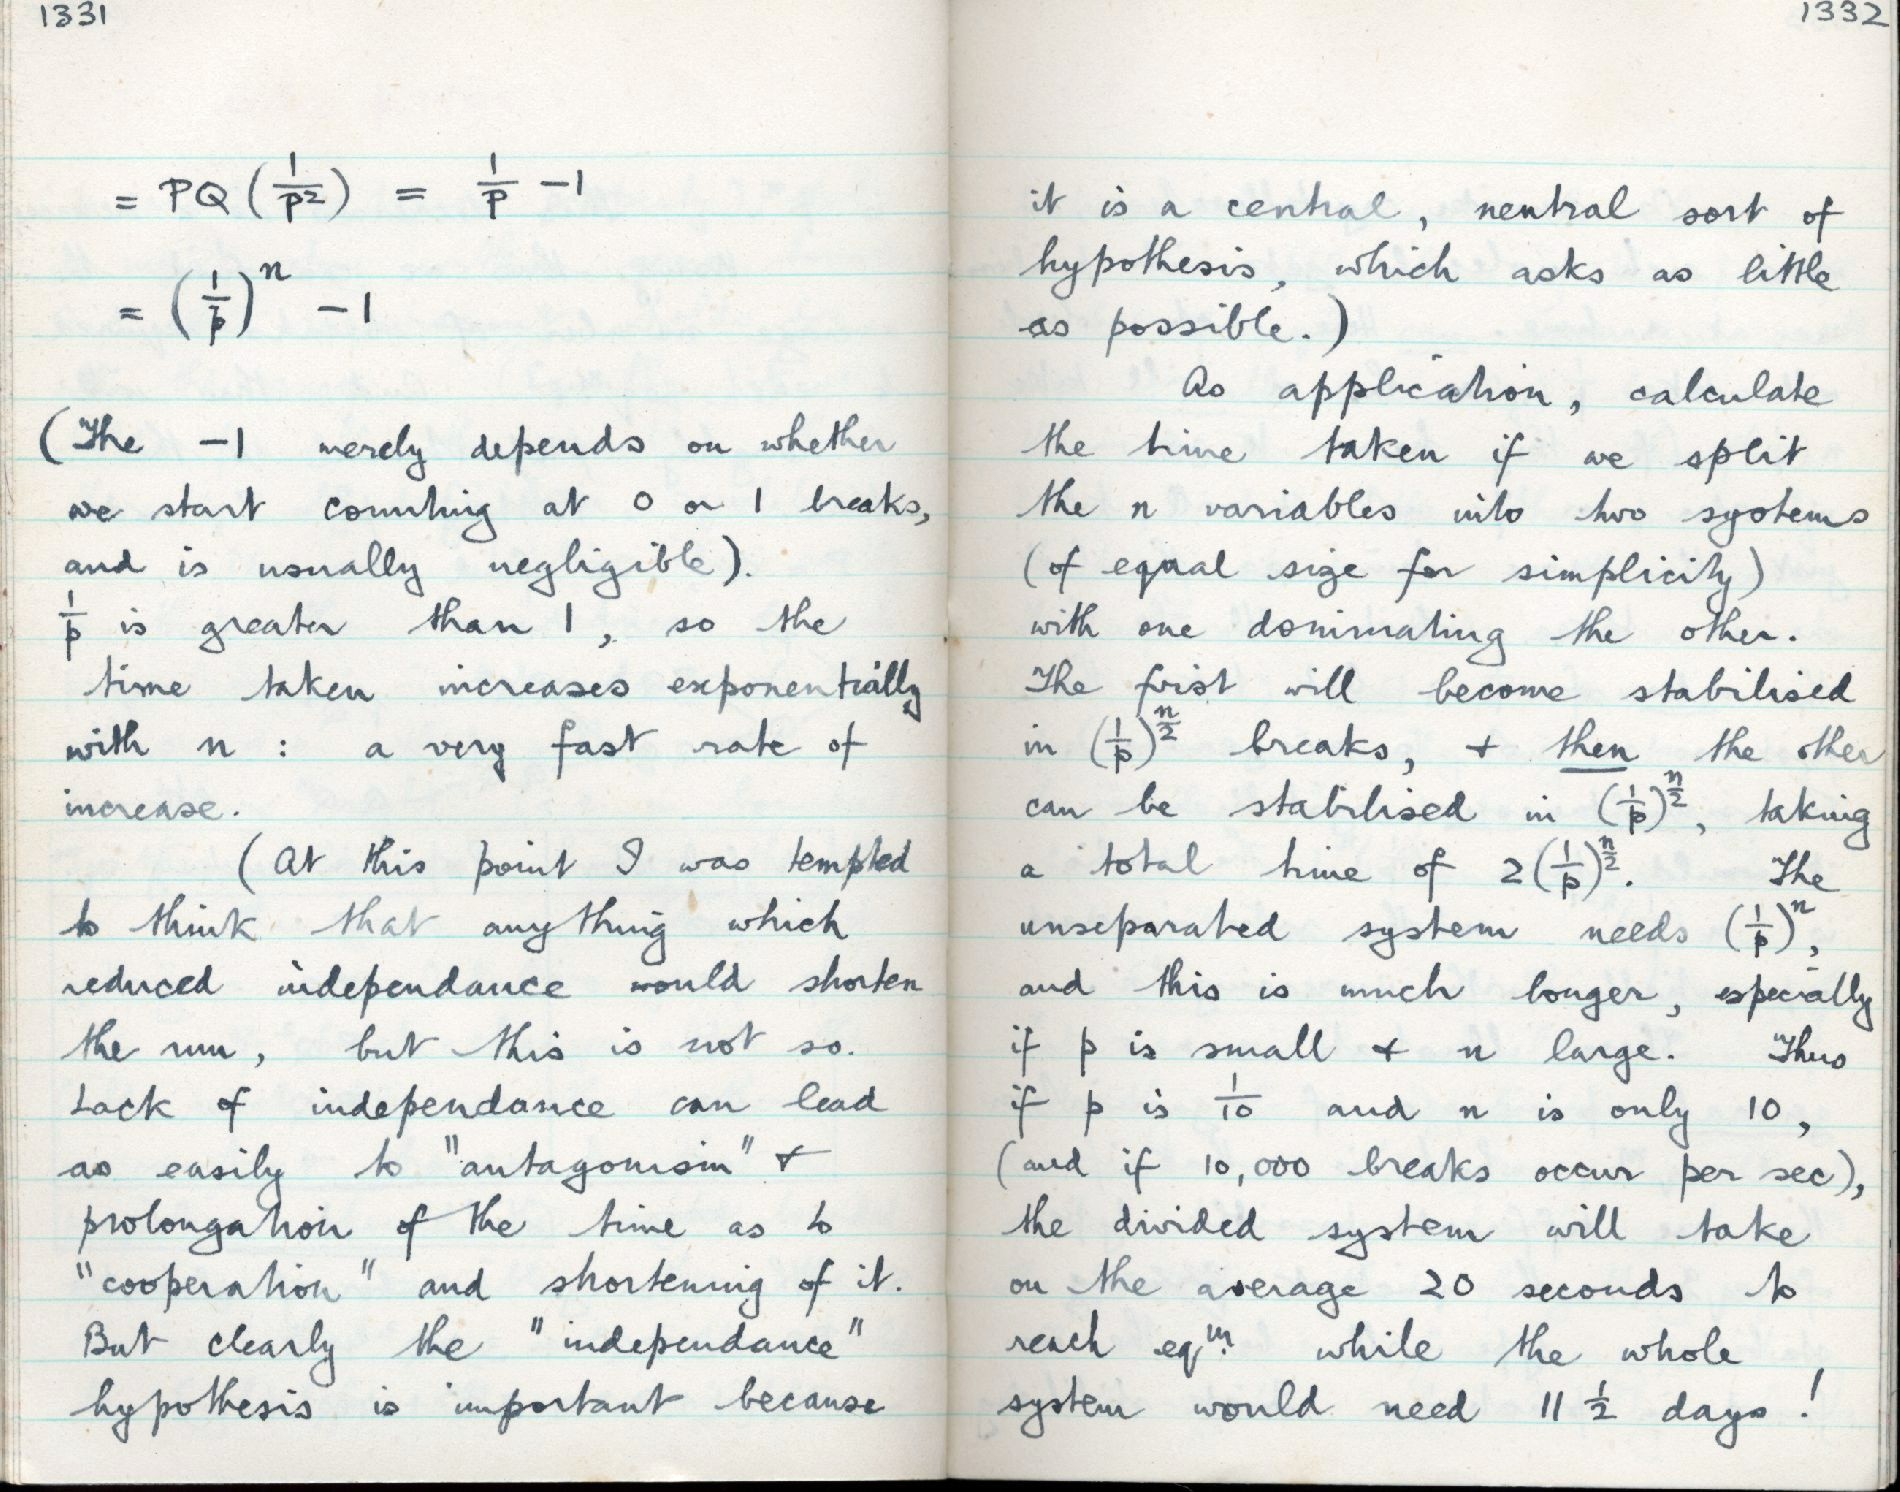 1331
= PQ (1/P²) = 1/P - 1
= (1/p)ⁿ - 1
(The -1 merely depends on whether
we start counting at 0 or 1 breaks,
and is usually negligible).
1/p is greater than 1, so the
time taken increases exponentially
with n : a very fast rate of
increase.
(At this point I was tempted
to think that anything which
reduced independance would shorten
the run, but this is not so.
Lack of independance can lead
as easily to "antagonism" &
prolongation of the time as to
"cooperation" and shortening of it.
But clearly the "independance"
hypothesis is important because
1332
it is a central, neutral sort of
hypothesis, which asks as little
as possible.)
As application, calculate
the time taken if we split
the n variables into two systems
(of equal size for simplicity)
with one dominating the other.
The first will become stabilised
in (1/p)^n/2 breaks, & then the other
can be stabilised in (1/p)^n/2, taking
a total time of 2(1/p)^n/2. The
unseparated system needs (1/p)ⁿ,
and this is much longer, especially
if p is small & n large. Thus
if p is 1/10 and n is only 10,
(and if 10,000 breaks occur per sec),
the divided system will take
on the average 20 seconds to
reach eqᵐ. while the whole
system would need 11 1/2 days!